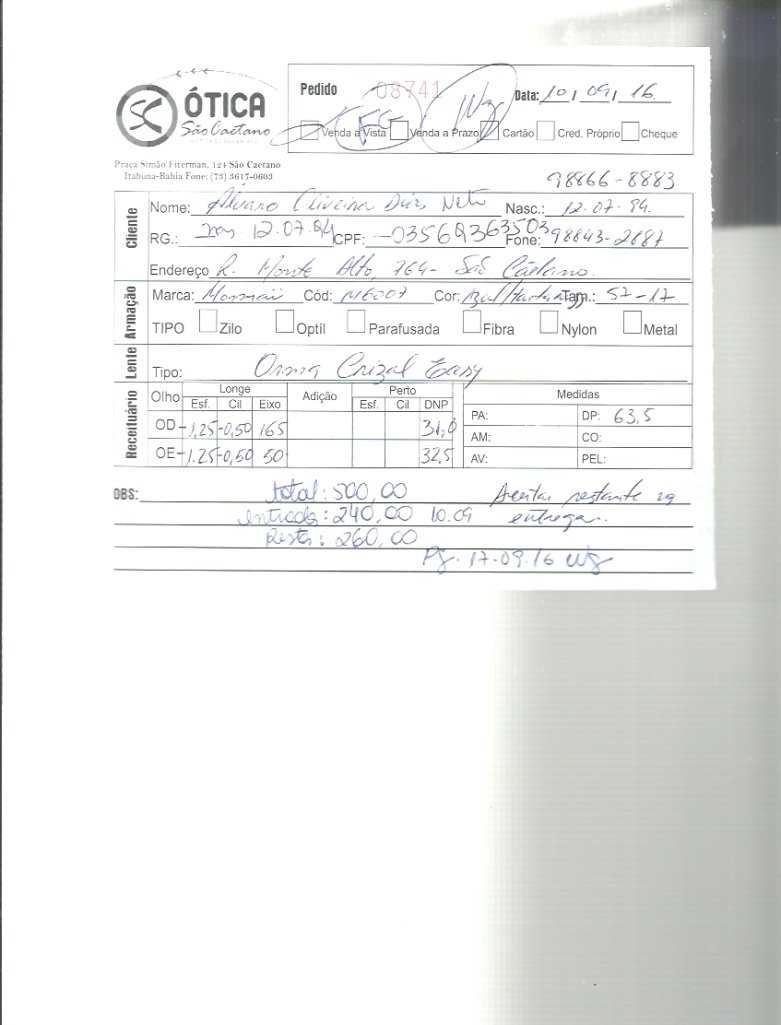 ÓTICA
São Caetano
Praça Simão Fiterman, 124 São Caetano
Itabuna-Bahia Fone: (73) 3617-0603
Pedido 08741 Data: 10/09/16
Venda a Vista Venda a Prazo Cartão Cred. Próprio Cheque
98866-8883
Cliente
Nome: Álvaro Oliveira Dias Neto Nasc.: 12.07.94.
RG.: 12.07.94 CPF: 03569363503 Fone: 98843-2687
Endereço R. Monte Alto, 764- São Caetano.
Armação
Marca: Mormaii Cód: M6007 Cor: Tam.: 57-17
TIPO Zilo Optil Parafusada Fibra Nylon Metal
Lente
Tipo: Orma Crizal Easy
Receituário
Olho Longe Adição Perto Medidas
Esf. Cil Eixo Esf. Cil DNP
PA: DP: 63,5
OD -1,25 -0,50 165 31,0
AM: CO:
OE -1.25 -0,50 50 32,5
AV: PEL:
OBS: total: 500,00 restante
entrada: 240,00 10.09 entrega.
Resta: 260,00
Pg. 17.09.16